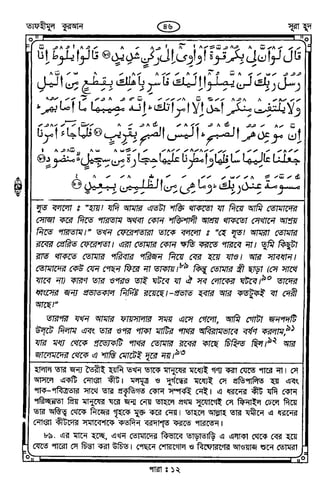 তাফহীমুল কুরআন
৪৬
সূরা হূদ
قَالَ لَوْ أَنَّ لِي بِكُمْ قُوَّةً أَوْ آوِي إِلَىٰ رُكْنٍ شَدِيدٍ ۝ قَالُوا يَا لُوطُ إِنَّا
رُسُلُ رَبِّكَ لَنْ يَصِلُوا إِلَيْكَ فَأَسْرِ بِأَهْلِكَ بِقِطْعٍ مِنَ اللَّيْلِ
وَلَا يَلْتَفِتْ مِنْكُمْ أَحَدٌ إِلَّا امْرَأَتَكَ إِنَّهُ مُصِيبُهَا مَا أَصَابَهُمْ
إِنَّ مَوْعِدَهُمُ الصُّبْحُ أَلَيْسَ الصُّبْحُ بِقَرِيبٍ ۝ فَلَمَّا جَاءَ أَمْرُنَا
جَعَلْنَا عَالِيَهَا سَافِلَهَا وَأَمْطَرْنَا عَلَيْهَا حِجَارَةً مِنْ سِجِّيلٍ مَنْضُودٍ ۝
مُسَوَّمَةً عِنْدَ رَبِّكَ وَمَا هِيَ مِنَ الظَّالِمِينَ بِبَعِيدٍ ۝
লূত বললো : "হায়! যদি আমার এতটা শক্তি থাকতো যা দিয়ে আমি তোমাদের
সোজা করে দিতে পারতাম অথবা কোন শক্তিশালী আশ্রয় থাকতো সেখানে আশ্রয়
নিতে পারতাম।" তখন ফেরেশতারা তাকে বললো : "হে লূত! আমরা তোমার
রবের প্রেরিত ফেরেশতা। এরা তোমার কোন ক্ষতি করতে পারবে না। তুমি কিছুটা
রাত থাকতে তোমার পরিবার পরিজন নিয়ে বের হয়ে যাও। আর সাবধান।
তোমাদের কেউ যেন পেছন ফিরে না তাকায়।৮৯ কিন্তু তোমার স্ত্রী ছাড়া (সে সাথে
যাবে না) কারণ তার ওপরও তাই ঘটবে যা ঐ সব লোকের ঘটবে।৯০ তাদের
ধ্বংসের জন্য প্রভাতকাল নির্দিষ্ট রয়েছে।–প্রভাত হবার আর কতটুকুই বা দেরী
আছে।"
তারপর যখন আমার ফায়সালার সময় এসে গেলো, আমি গোটা জনপদটি
উল্টে দিলাম এবং তার ওপর পাকা মাটির পাথর অবিরামভাবে বর্ষণ করলাম,৯১
যার মধ্য থেকে প্রত্যেকটি পাথর তোমার রবের কাছে চিহ্নিত ছিল।৯২ আর
জালেমদের থেকে এ শাস্তি মোটেই দূরে নয়।৯৩
হালাল তার জন্য তৈরীই হয়নি তখন তাকে মানুষের মধ্যেই গণ্য করা যেতে পারে না। সে
আসলে একটি নোংরা কীট। মলমূত্র ও দুর্গন্ধের মধ্যেই সে প্রতিপালিত হয় এবং
পাক-পবিত্রতার সাথে তার প্রকৃতিগত কোন সম্পর্কই নেই। এ ধরনের কীট যদি কোন
পরিচ্ছন্নতা প্রিয় মানুষের ঘরে জন্ম নেয় তাহলে প্রথম সুযোগেই সে ফিনাইল ঢেলে দিয়ে
তার অস্তিত্ব থেকে নিজের গৃহকে মুক্ত করে নেয়। তাহলে আল্লাহ তার যমীনে এ ধরনের
নোংরা কীটদের সমাবেশকে কতদিন বরদাশ্‌ত করতে পারতেন।
৮৯. এর মানে হচ্ছে, এখন তোমাদের কিভাবে তাড়াতাড়ি এ এলাকা থেকে বের হয়ে
যেতে পারো সে চিন্তা করা উচিত। পেছনে শোরগোল ও বিস্ফোরণের আওয়াজ শুনে তোমরা
পারা : ১২